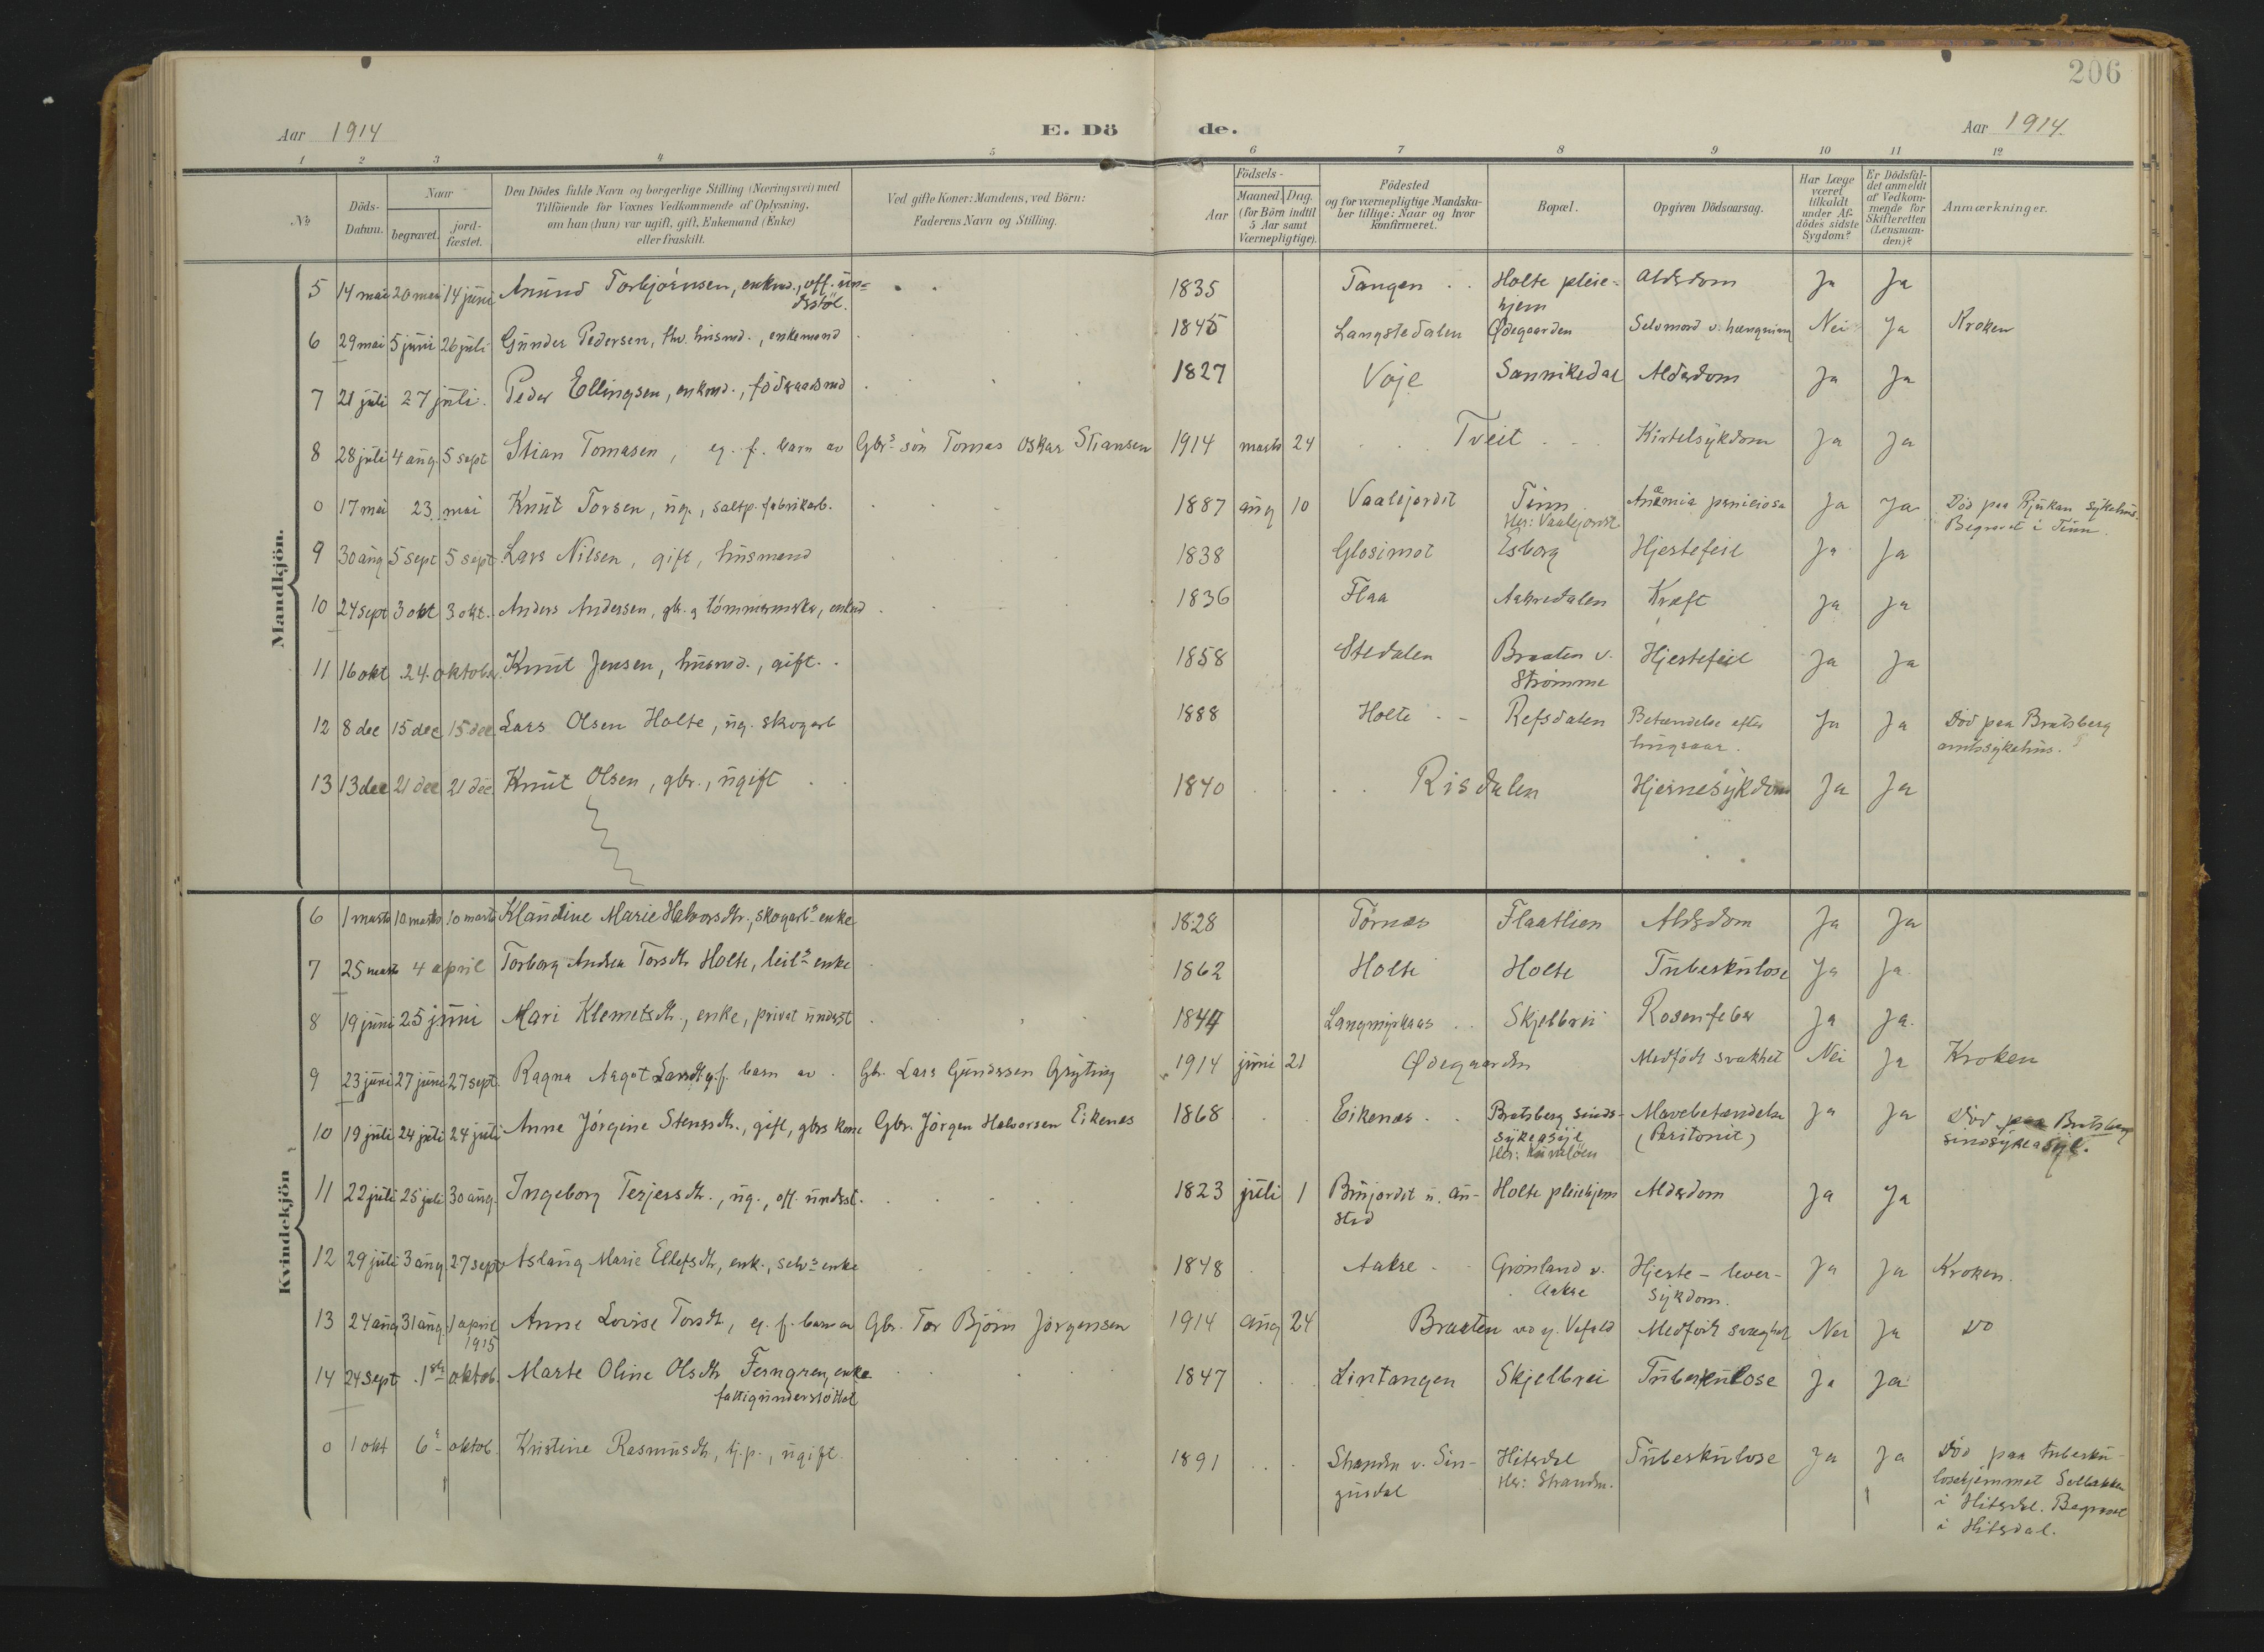 206
Aar 1914
E. Dö de.
Aar 1914.
1 2 3 4 5 6 7 8 9 10 11 12
№ Döds-Datum. Naar begravet. jord-fæstet. Den Dödes fulde Navn og borgerlige Stilling (Næringsvei) med Tilföiende for Voxnes Vedkommende af Oplysning, om han (hun) var ugift, gift, Enkemand (Enke) eller fraskilt. Ved gifte Koner: Mandens, ved Börn: Faderens Navn og Stilling. Födsels- Aar Maaned. Dag. (for Börn indtil 5 Aar samt Værnepligtige). Födested og for værnepligtige Mandskaber tillige: Naar og hvor konfirmeret. Bopæl. Opgiven Dödsaarsag. Har Læge været tilkaldt under Afdödes sidste Sygdom? Er Dödsfaldet anmeldt af Vedkommende for Skifteretten (Lensmanden)? Anmærkninger.
Mandkjön.
5 14 mai 20 mai 14 juni Anund Torbjörnsen, enkmd., off. un=dstöt. 1835 Tangen Holte pleie=hjem Aldrdom Ja Ja
6 29 mai 5 juni 26 juli Gunder Pedersen, fhv. husmd., enkemand 1845 Langstedalen Ødegaarden Selvmord v. hængning Nei Ja Kroken
7 21 juli 27 juli. Peder Ellingsen, enkmd., födraadsmd 1827 Voje Sannikedal Aldrdom Ja Ja
8 28 juli 4 aug. 5 sept Stian Tomasen, eg. f. barn av Gbrs sön Tomas Oskar Stiansen 1914 marts 24 Tveit Kirtelsykdom Ja Ja
0 17 mai 23 mai Knut Torsen, ug., saltp. fabrikarb. 1887 aug 10 Vaalejordet Tinn Her: Vaalejordet Anæmia perniciosa Ja Ja Död paa Rjukan sykehus. Begravet i Tinn.
9 30 aug 5 sept 5 sept Lars Nilsen, gift, husmand 1838 Glosimot Esborg Hjertefeil Ja Ja
10 24 sept 3 okt 3 okt. Anders Andersen, gbr. og tömmermerker, enkmd 1836 Flaa Aakredalen Kræft Ja Ja
11 16 okt 24. oktober Knut Jensen, husmd., gift. 1858 Stedalen Braaten v. Strømme Hjertefeil Ja Ja
12 8 dec 15 dec 15 dec. Lars Olsen Holte, ug. skogarb 1888 Holte Refsdalen Betændelse efter hugsaar. Ja Ja Död paa Bratsberg amtssykehus.
13 13 dec 21 dec 21 dec. Knut Olsen, gbr., ugift 1840 Risdalen Hjernesykdom Ja Ja
Kvindekjön
6 1 marts 10 marts 10 marts Klaudine Marie Halvorsdtr., skogarbs enke 1828 Törnes Flaatlien Aldrdom Ja Ja
7 25 marts 4 april Torborg Andrea Torsdtr Holte, leils enke 1862 Holte Holte Tuberkulose Ja Ja
8 19 juni 25 juni Mari Klemetsdtr., enke, privat underst 1844 Langmyrhaas Skjelbrei Rosenfeber Ja Ja.
9 23 juni 27 juni 27 sept. Ragna Aagot Larsdtr eg. f. barn av Gbr. Lars Gundersen Gryting 1914 juni 21 Ødegaarden Medfödt svakhet Nei Ja Kroken
10 19 juli 24 juli 24 juli Anne Jörgine Stensdtr., gift, gbrs kone Gbr. Jörgen Halvorsen Eikenes 1868 Eikenes Bratsberg sinds-sykeasyl Mavebetændelse (Peritonit) Ja Ja Död paa Bratsberg sindssykeasyl.
11 22 juli 25 juli 30 aug. Ingeborg Terjesdtr., ug., off. underst. 1823 juli 1 Brujordet u. Au-stad Holte pleiehjem Aldrdom Ja Ja
12 29 juli 3 aug 27 sept Aslaug Marie Ellefsdtr, enk., selvs enke 1848 Aakre Grönland v. Aakre Hjerte- lever-sykdom. Ja Ja Kroken.
13 24 aug 31 aug. 1 april 1915 Anne Lovise Torsdtr., eg. f. barn av Gbr. Tor Björn Jörgensen 1914 aug 24 Braaten ved y. Vefald Medfödt svaghet Nei Ja Do
14 24 sept 1ste oktob. Marte Oline Olsdtr Ferngren, enke fattigunderstöttet 1847 Lintangen Skjelbrei Tuberkulose Ja Ja
0 1 okt 6te oktob. Kristine Rasmusdtr., tj.p., ugift. 1891 Stranden v. Sin-gusdal Hitterdal Her: Stranden. Tuberkulose Ja Ja Död paa tuberku-losehjemmet Solbakken i Hitterdal. Begravet i Hitterdal.